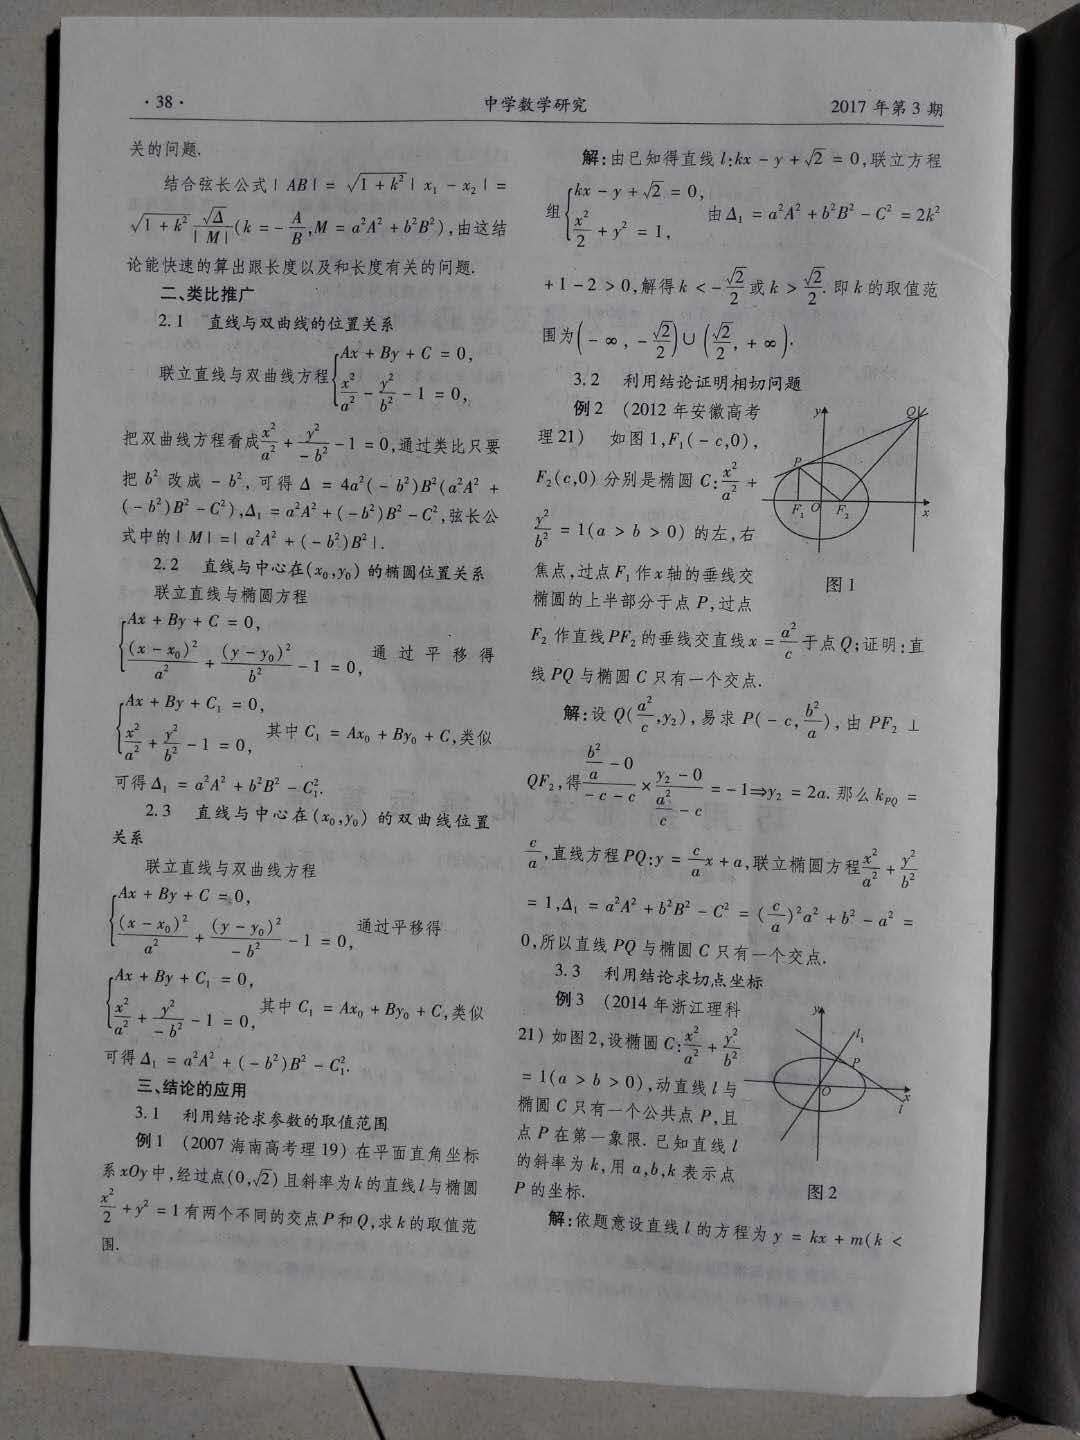 ·38·
中学数学研究
2017 年第 3 期
关的问题.
结合弦长公式 | AB | = √(1 + k²) | x₁ - x₂ | =
√(1 + k²) √Δ/| M | (k = - A/B, M = a²A² + b²B²), 由这结
论能快速的算出跟长度以及和长度有关的问题.
二、类比推广
2.1 直线与双曲线的位置关系
联立直线与双曲线方程 { Ax + By + C = 0,
x²/a² - y²/b² - 1 = 0,
把双曲线方程看成 x²/a² + y²/(-b²) - 1 = 0, 通过类比只要
把 b² 改成 - b², 可得 Δ = 4a²(- b²)B²(a²A² +
(- b²)B² - C²), Δ₁ = a²A² + (- b²)B² - C², 弦长公
式中的 | M | = | a²A² + (- b²)B² |.
2.2 直线与中心在(x₀,y₀) 的椭圆位置关系
联立直线与椭圆方程
{ Ax + By + C = 0,
(x - x₀)²/a² + (y - y₀)²/b² - 1 = 0, 通过平移得
{ Ax + By + C₁ = 0,
x²/a² + y²/b² - 1 = 0, 其中 C₁ = Ax₀ + By₀ + C, 类似
可得 Δ₁ = a²A² + b²B² - C₁².
2.3 直线与中心在(x₀,y₀) 的双曲线位置
关系
联立直线与双曲线方程
{ Ax + By + C = 0,
(x - x₀)²/a² + (y - y₀)²/(-b²) - 1 = 0, 通过平移得
{ Ax + By + C₁ = 0,
x²/a² + y²/(-b²) - 1 = 0, 其中 C₁ = Ax₀ + By₀ + C, 类似
可得 Δ₁ = a²A² + (- b²)B² - C₁².
三、结论的应用
3.1 利用结论求参数的取值范围
例1 (2007 海南高考理 19) 在平面直角坐标
系 xOy 中, 经过点(0,√2) 且斜率为 k 的直线 l 与椭圆
x²/2 + y² = 1 有两个不同的交点 P 和 Q, 求 k 的取值范
围.
解: 由已知得直线 l: kx - y + √2 = 0, 联立方程
组 { kx - y + √2 = 0,
x²/2 + y² = 1, 由 Δ₁ = a²A² + b²B² - C² = 2k²
+ 1 - 2 > 0, 解得 k < - √2/2 或 k > √2/2. 即 k 的取值范
围为 (- ∞, - √2/2) ∪ (√2/2, + ∞).
3.2 利用结论证明相切问题
例2 (2012 年安徽高考
理21) 如图 1, F₁(- c,0),
F₂(c,0) 分别是椭圆 C: x²/a² +
y²/b² = 1(a > b > 0) 的左, 右
焦点, 过点 F₁ 作 x 轴的垂线交
椭圆的上半部分于点 P, 过点
F₂ 作直线 PF₂ 的垂线交直线 x = a²/c 于点 Q; 证明: 直
线 PQ 与椭圆 C 只有一个交点.
y
Q
P
F₁
O
F₂
x
图 1
解: 设 Q(a²/c, y₂), 易求 P(- c, b²/a), 由 PF₂ ⊥
QF₂, 得 (b²/a - 0)/(- c - c) × (y₂ - 0)/(a²/c - c) = - 1 ⇒ y₂ = 2a. 那么 k_PQ =
c/a, 直线方程 PQ: y = c/a x + a, 联立椭圆方程 x²/a² + y²/b²
= 1, Δ₁ = a²A² + b²B² - C² = (c/a)²a² + b² - a² =
0, 所以直线 PQ 与椭圆 C 只有一个交点.
3.3 利用结论求切点坐标
例3 (2014 年浙江理科
21) 如图 2, 设椭圆 C: x²/a² + y²/b²
= 1(a > b > 0), 动直线 l 与
椭圆 C 只有一个公共点 P, 且
点 P 在第一象限. 已知直线 l
的斜率为 k, 用 a,b,k 表示点
P 的坐标.
y
l₁
P
O
x
l
图 2
解: 依题意设直线 l 的方程为 y = kx + m(k <